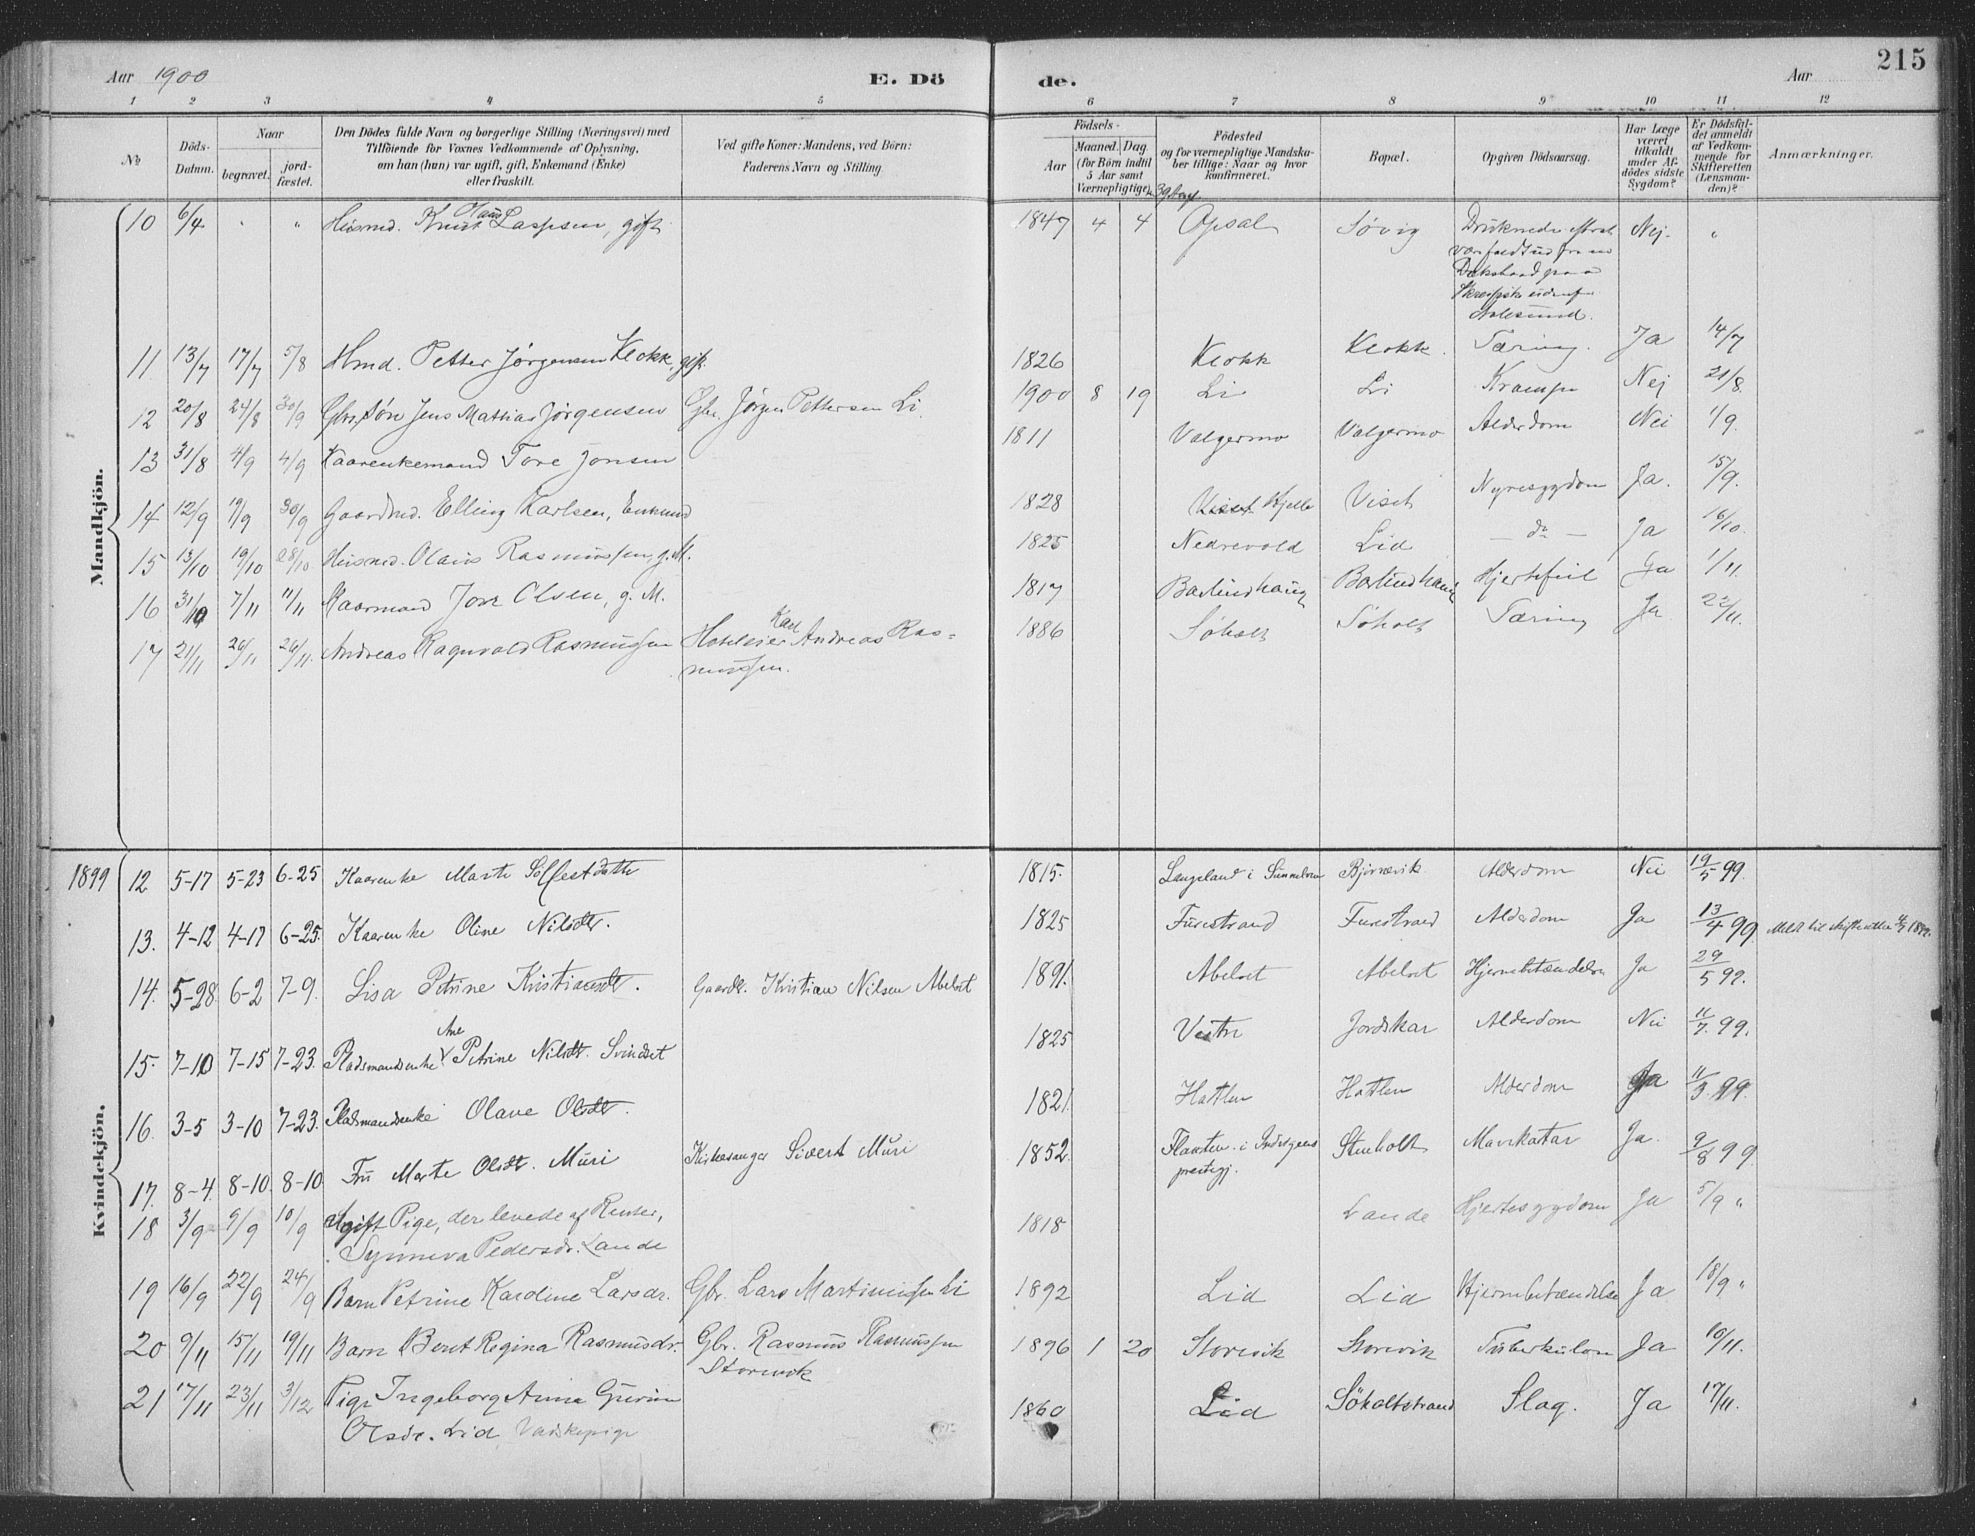 Aar 1900 E. Dö de. Aar 215
1 2 3 4 5 6 7 8 9 10 11 12
No
Döds-Datum.
Naar
begravet.
jord-fæstet.
Den Dödes fulde Navn og borgerlige Stilling (Næringsvei) med
Tilföiende for Voxnes Vedkommende af Oplysning,
om han (hun) var ugift, gift, Enkemand (Enke)
eller fraskilt.
Ved gifte Koner: Mandens, ved Börn:
Faderens Navn og Stilling
Födsels-
Aar
Maaned. Dag.
(for Börn indtil
5 Aar samt
Værnepligtige)
Födested
og for værnepligtige Mandska-
ber tillige: Naar og hvor
konfirmeret.
Bopæl.
Opgiven Dödsaarsag.
Har Læge
været
tilkaldt
under Af-
dödes sidste
Sygdom?
Er Dödsfal-
det anmeldt
af Vedkom-
mende for
Skifteretten
(Lensman-
den)?
Anmærkninger.
Mandkjön.
10 6/4 " " Husmd. Knut Olaus Laspsen, gift 1847 4 4 Opsal Søvig Nej. "
Aalesund.
11 13/7 17/7 5/8 Hmd. Petter Jørgensen Klokk, gift. 1826 Klokk Klokk. Tæring. Ja 14/7
12 20/8 24/8 30/9 Gbr. søn Jens Mathias Jørgensen Gbr. Jørgen Pettersen Li. 1900 8 19 Li Li Krampe Nej 21/8.
13 31/8 4/9 4/9 Kaarenkemand Tore Jonsen 1811 Valgermo Valgermo Alderdom Nei 1/9.
14 12/9 19/9 30/9 Gaardmd. Elling Karlsen, Enkmd 1828 Viset Hjelle Viset Nyresygdom Ja. 15/9.
15 13/10 19/10 28/10 Husmd. Olaus Rasmussen, g. M. 1825 Nedrevold Lid - do - Ja 16/10.
16 31/10 7/11 11/11 Kaarmand Jon Olsen, g. M. 1817 Barlindhaug Barlindhaug Hjertefeil Ja 1/11.
17 21/11 26/11 26/11. Andreas Ragnvald Rasmussen Hoteleier Karl Andreas Ras= 1886 Søholt Søholt Tæring Ja 22/11.
mussen.
Kvindekjön.
1899 12 5-17 5-23 6-25 Kaarenke Marte Solfestdatter 1815. Langeland i Bjørnevik Alderdom Nei 19/5 99.
13. 4-12 4-17 6-25. Kaarenke Oline Nilsdtr. 1825 Furestrand Furestrand Alderdom Ja 13/4 99 Meldt til skifteretten 1899.
14. 5-28 6-2 7-9. Lisa Petrine Kristiansdt. Gaardbr. Kristian Nilsen Abelset 1891. Abelset Abelset Hjernebetændelse Ja 29/5 99.
15. 7-10 7-15 7-23. Pladsmandsenke Ane Petrine Nilsdt. Svindset 1825 Vestre Jordskar Alderdom Nei 11/7. 99.
16. 3-5 3-10 7-23. Pladsmandsenke Olave Olsdt. 1821. Hatlen Hatlen Alderdom Ja 11/3 99.
17. 8-4. 8-10. 8-10 Fru Marte Olsdt. Muri Kirkesanger Sivert Muri 1852. Stenholt Mavekatar Ja. 9/8 99.
prestegj.
18 3/9 9/9 10/9 Ugift Pige, der levede af Renter, 1818 Lande Hjertesygdom Ja 5/9 "
Synneva Pedersdr. Lande
19 16/9 22/9 24/9 Barn Petrine Karoline Larsdr. Gbr. Lars Martinussen Li 1892 Lid Lid Hjernebetændelse Ja 18/9 "
20 9/11 15/11 19/11 Barn Berit Regina Rasmusdr. Gbr. Rasmus Rasmussen 1896 1 20 Storevik Storevik Tuberkulose Ja 10/11.
Storevik
21 17/11 23/11 3/12 Pige Ingeborg Anna Gurine 1860 Lid Söholtstrand Slag. Ja 17/11.
Olsdr. Lid, Vadskepige